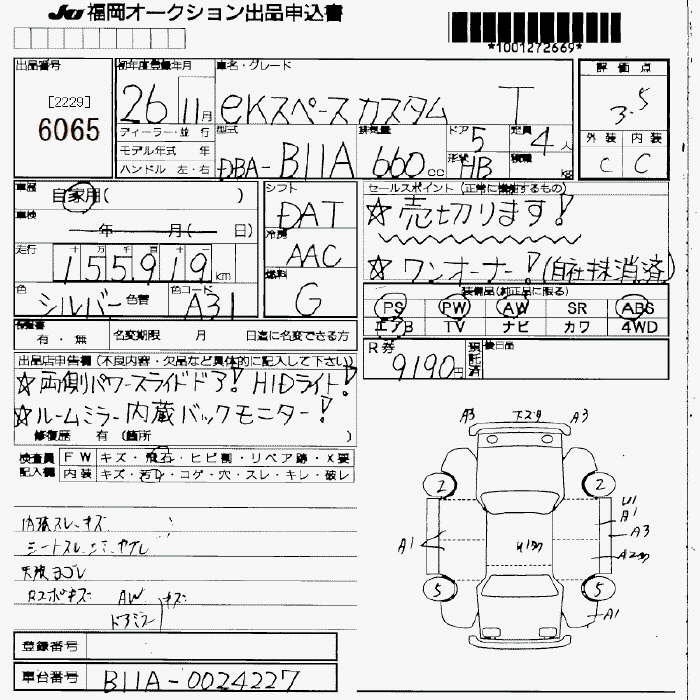 JU 福岡オークション出品申込書
*1001272669*
出品番号
[2229]
6065
初年度登録年月
26 11月
ディーラー・並 行
モデル年式 年
ハンドル 左・右
車名・グレード
eKスペースカスタム T
型式
DBA-B11A
排気量
660cc
ドア
5
定員
4人
形状
HB
積載
kg
評価点
3.5
外装 内装
C C
車歴
自家用( )
車検
年 月( 日)
走行
十 万 千 百 十 一
155919km
色
シルバー
色替
色コード
A31
シフト
DAT
冷房
AAC
燃料
G
セールスポイント (正常に機能するもの)
☆売切ります!
☆ワンオーナー!(自社抹消済)
装備品(純正品に限る)
PS PW AW SR ABS
エアB TV ナビ カワ 4WD
有・無
名変期限 月 日迄に名変できる方
R券
9190円
預託済
後日品
出品店申告欄(不良内容・欠品など具体的に記入して下さい)
☆両側パワースライドドア! HIDライト!
☆ルームミラー内蔵バックモニター!
修復歴 有(箇所 )
検査員記入欄
FW キズ・飛石・ヒビ割・リペア跡・X要
内装 キズ・汚れ・コゲ・穴・スレ・キレ・破レ
内張スレ、キズ
天張ヨゴレ
AW キズ
ドアミラー
A3 A3
2 2
A1
U1
A1
A3
5 5
A1
登録番号
車台番号
B11A-0024227